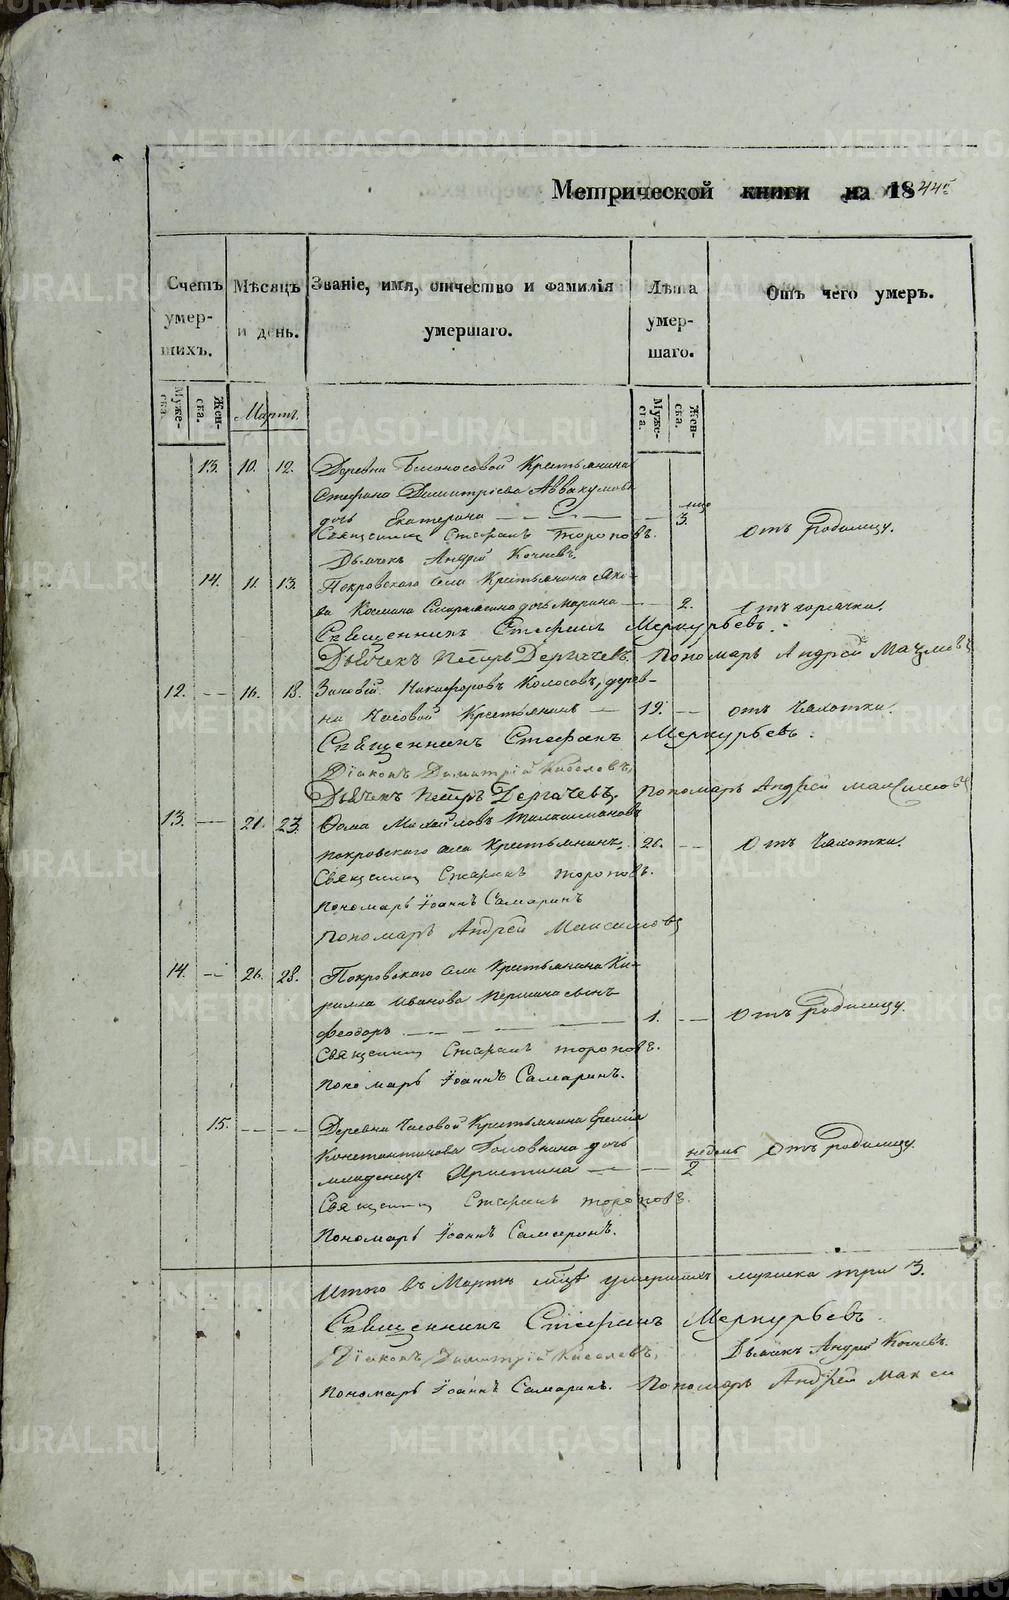 Метрической книги на 1844г
Счетъ умер- шихъ.
Мѣсяцъ и день.
Званіе, имя, отчество и фамилія умершаго.
Лѣта умер- шаго.
Отъ чего умеръ.
Муже- ска.
Жен- ска.
Мартъ.
Муже- ска.
Жен- ска.
13. 10. 12. Деревни Белоносовой Крестьянина
Стефана Димитріева Аввакумова
дочь Екатерина 3. Отъ родимцу.
Священникъ Стефанъ Тороповъ.
Дьячекъ Андрей Кочневъ.
14. 11. 13. Покровскаго села Крестьянина Яко-
ва Космина дочь Марина 2. Отъ горячки.
Священникъ Стефанъ Меркурьевъ.
Дьячекъ Петръ Дергачевъ. Пономарь Андрей Максимовъ
12. 16. 18. Зиновій Никифоровъ Колосовъ, дерев-
ни Часовой Крестьянинъ 19. отъ Чахотки.
Священникъ Стефанъ Меркурьевъ.
Діаконъ Димитрій Киселевъ,
Дьячекъ Петръ Дергачевъ. Пономарь Андрей Максимовъ
13. 21. 23. Фома Михайловъ
Покровскаго села Крестьянинъ. 26. Отъ Чахотки.
Священникъ Стефанъ Тороповъ.
Пономарь Іоаннъ Самаринъ
Пономарь Андрей Максимовъ
14. 26. 28. Покровскаго села Крестьянина Ки-
рилла Иванова Першина сынъ
Феодоръ 1. Отъ родимцу.
Священникъ Стефанъ Тороповъ.
Пономарь Іоаннъ Самаринъ.
15. Деревни Часовой Крестьянина
Константинова Головнина дочь
младенецъ Христина недель 2 Отъ родимцу.
Священникъ Стефанъ Тороповъ.
Пономарь Іоаннъ Самаринъ.
Итого въ Мартѣ мцѣ умершихъ мужеска три 3.
Священникъ Стефанъ Меркурьевъ.
Діаконъ Димитрій Киселевъ, Дьячекъ Андрей Кочневъ.
Пономарь Іоаннъ Самаринъ. Пономарь Андрей Макси
METRIKI.GASO-URAL.RU